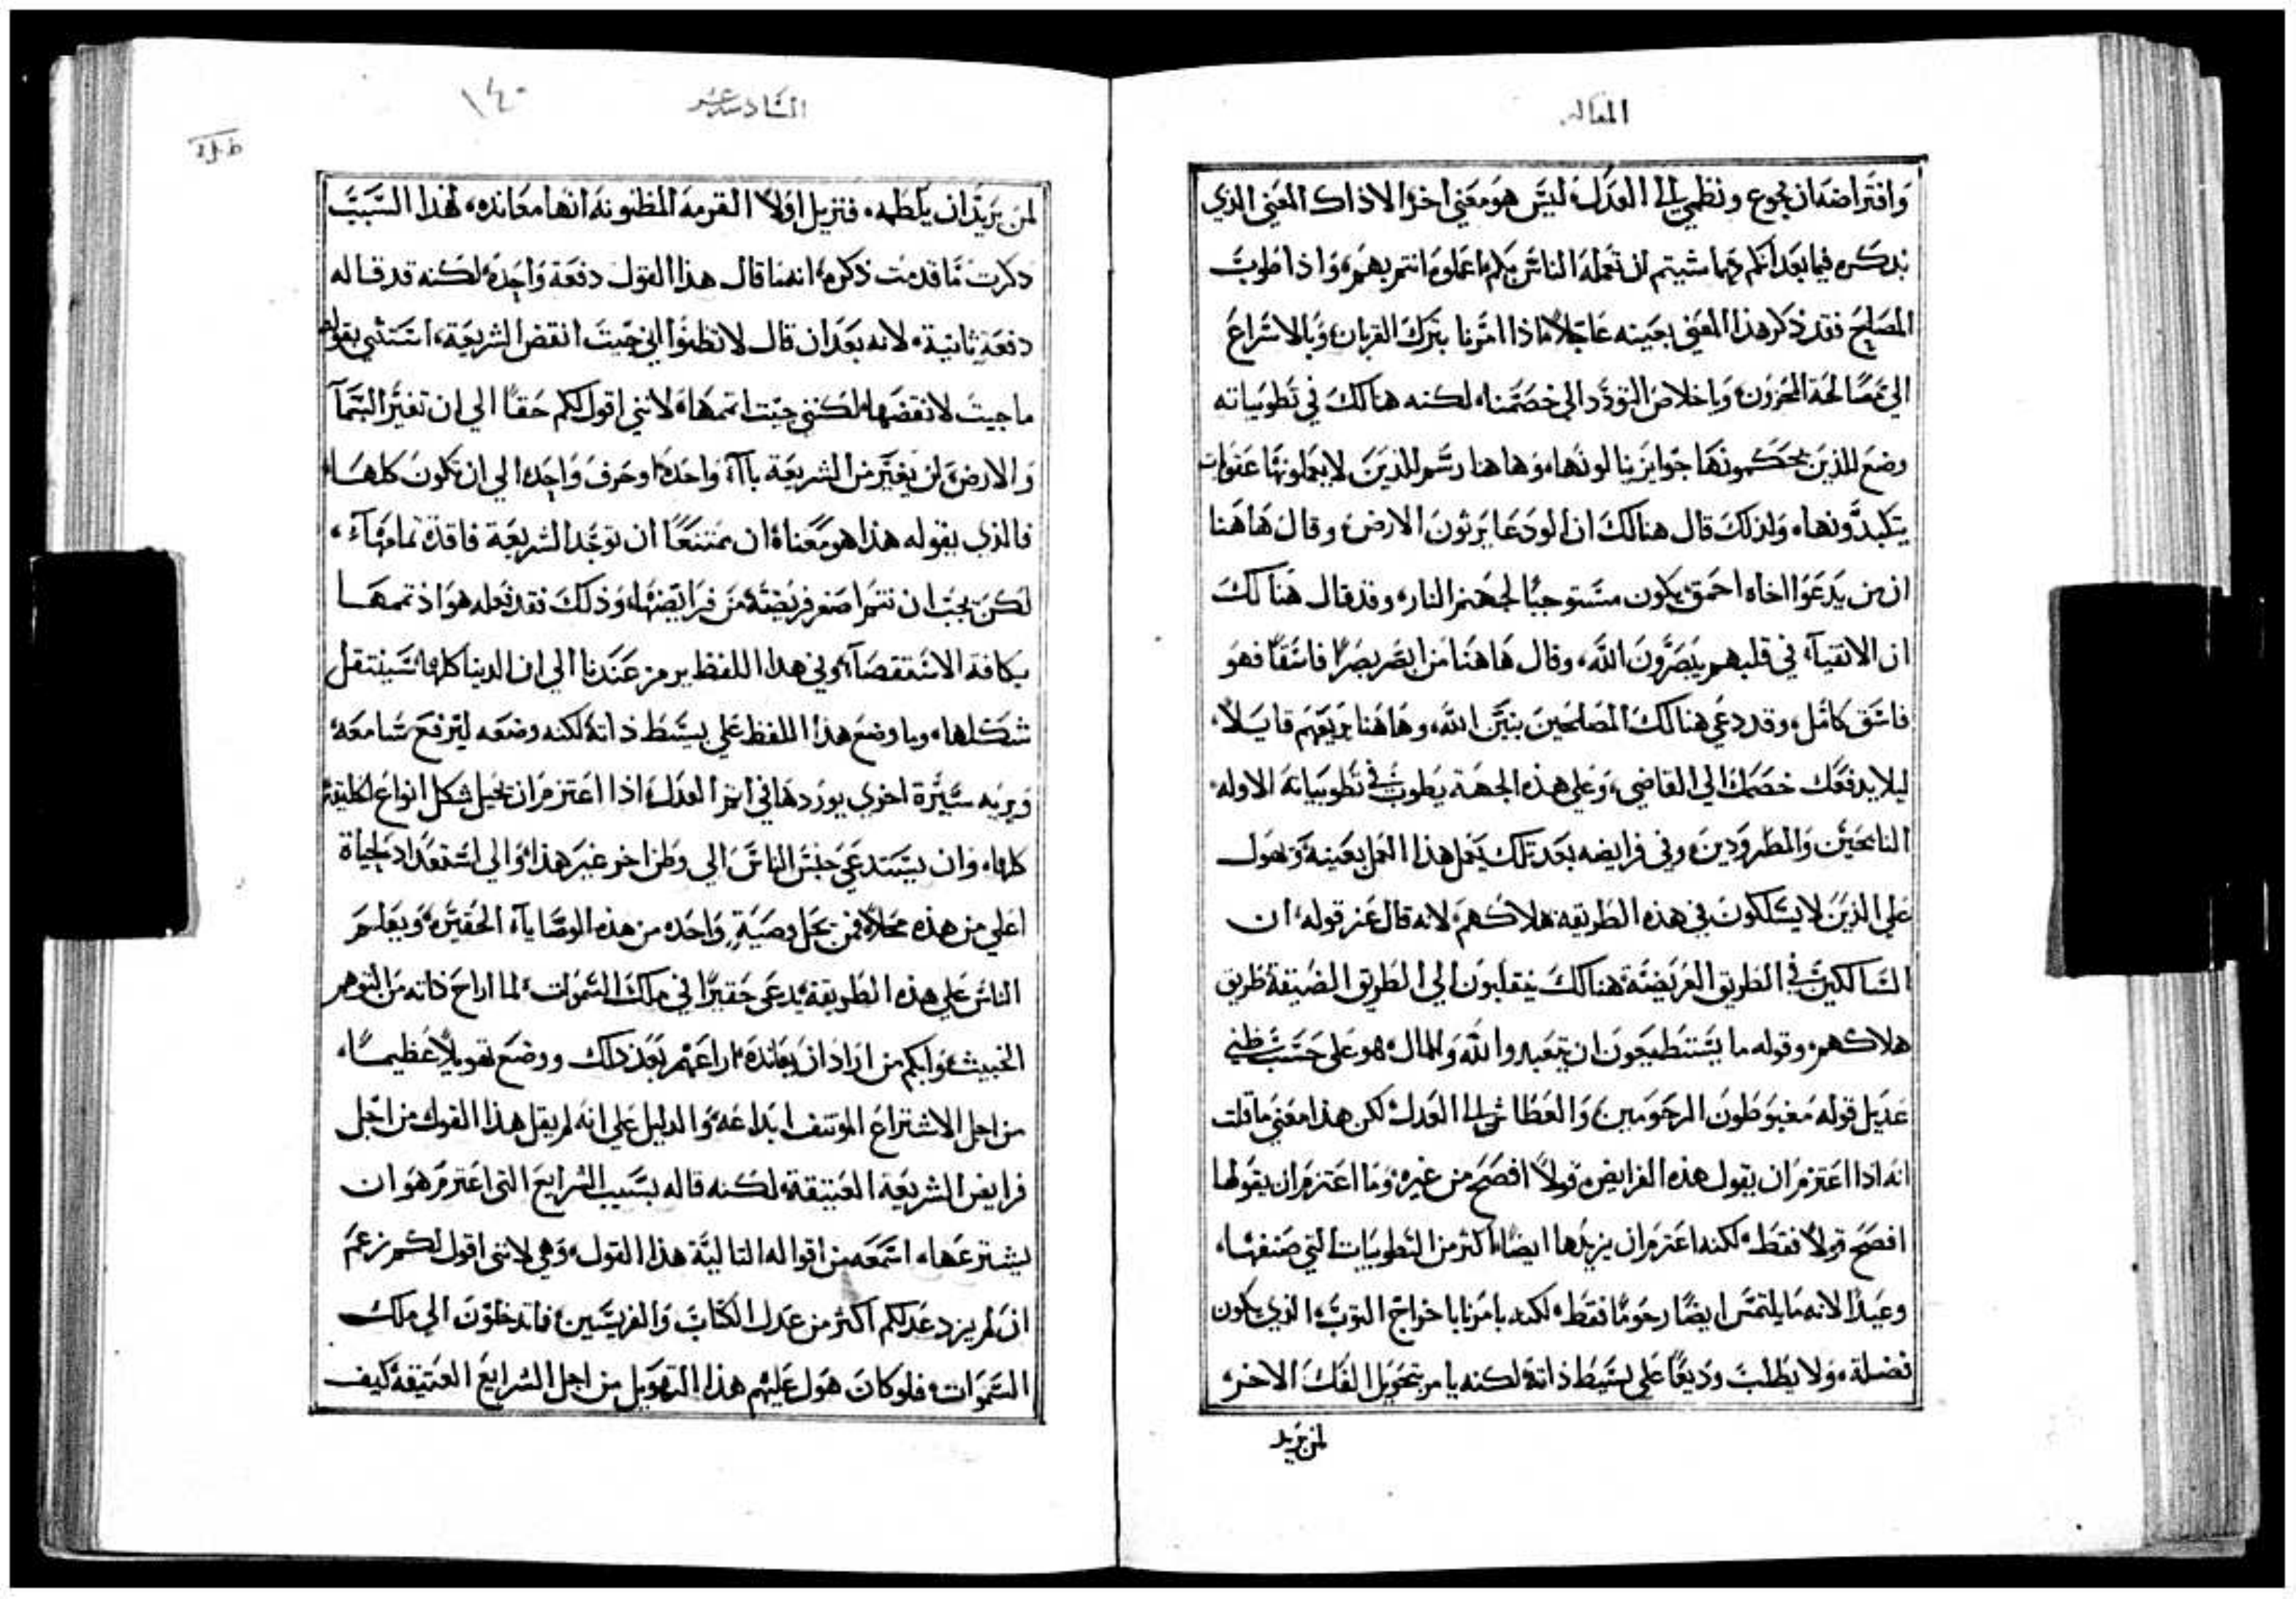 المقاله
وافتراضه ان نجوع ونظمي الى العدل ليس هو معني اخر الا ذاك المعني الذي
يذكره فيما بعد انكم مهما شيتم ان تعمله الناس بكم اعملوه انتم بهم، واذا طوب
المصالح فقد ذكر هذا المعني بعينه عاجلاً ماذا امرنا بترك القربان، وبالاسراع
الي مصالحة المحزون، وباخلاص التودد الي خصمنا، لكنه هنالك في تطويباته
وضع للذين يحكمونها جوايز ينالونها، وهاهنا رسم للذين لا يعملونها عقوبات
يتكبدونها، ولذلك قال هنالك ان الودعا يرثون الارض، وقال هاهنا
ان من يدعوا اخاه احمق، يكون مستوجباً لجهنم النار، وقد قال هنالك
ان الاتقيآء في قلبهم يبصرون الله، وقال هاهنا من ابصر بصراً فاسقاً فهو
فاسق كامل، وقد دعي هنالك المصلحين بنين الله، وهاهنا يريعهم قايلاً،
ليلا يدفعك خصمك الي القاضي، وعلي هذه الجهة يطوب في تطويباته الاوله
النايحين والمطرودين، وفي فرايضه بعد تلك يعمل هذا العمل بعينه، ويهول
علي الذين لا يسلكون في هذه الطريقه هلاكهم، لانه قال عنر قوله، ان
السالكين في الطريق العريضة هنالك ينقلبون الي الطريق الضيقة طريق
هلاكهم، وقوله ما يستطيعون ان تتعبدوا لله والمال، هو علي حسب ظني
عديل قوله مغبوطون المرحومين، والعطاش الى العدل، لكن هذا معني ما قلت
انه اذا اعتزم ان يقول هذه الفرايض، قولاً افصح من غيره، وما اعتزم ان يقولها
افصح قولاً فقط، لكنه اعتزم ان يزيدها ايضاً، اكثر من التطويبات التي صنفها،
وعيداً لانه ما يلتمس ايضاً رحوماً فقط، لكنه يامرنا باخراج الثوب، الذي يكون
فضلة، ولا يطلب وديعاً علي بسيط ذاته، لكنه يامر بتحويل الفك الاخر،
لمن يريد
السادسة عشر
١٤٠
لمن يريد ان يلطمه، فتزيل اولاً القرمة المظنونة انها معانده، لهذا السبب
ذكرت ما قدمت ذكره، انه ما قال هذا القول دفعة واحدة، لكنه قد قاله
دفعة ثانية، لانه بعد ان قال لا تظنوا اني جيت انقض الشريعة، استثني بقوله
ما جيت لانقضها، لكنني جيت اتممها، لانني اقول لكم حقاً الي ان تغير السمآ
والارض، لن يغير من الشريعة يآآء واحدة، او حرف واحد، الي ان تكون كلها،
فالذي يقوله هذا هو معناه، ان ممتنعاً ان توجد الشريعة فاقدة تمامهآء،
لكن يجب ان تتم اصغر فريضة من فرايضها، وذلك فقد فعله هو اذ تممها
بكافة الاستقصآء، وفي هذا اللفظ يرمز عندنا الي ان الدنيا كلها، سينتقل
شكلها، وما وضع هذا اللفظ علي بسيط ذاته، لكنه وضعه ليرفع سامعه
ويريه سيرة اخري يوردها في آخر العدل، اذا اعتزم ان يحيل شكل انواع الخليقة
كلها، وان يستدعي جنس الناس الي وطن اخر غير هذا، والي استعداد لحياة
اعلي من هذه محلاً، فمن يحل وصية واحده من هذه الوصايآء الحقيره، ويعلم
الناس علي هذه الطريقة، يدعي حقيراً في ملك السموات، لما اراح ذاته من التوهم
الخبيث، وابكم من اراد ان يعانده، اراعهم بعد ذلك ووضع تهويلاً عظيماً،
من اجل الاشتراع الموتنف ابداعه، والدليل علي انه لم يقل هذا القول من اجل
فرايض الشريعة العتيقة، لكنه قاله بسبب الشرايع التي اعتزم هو ان
يشترعها، اسمعه من اقواله التالية هذا القول، وهي لانني اقول لكم زعم
ان لم يزد عدلكم اكثر من عدل الكتاب والفريسين، فما تدخلون الي ملك
السموات، فلو كان هول عليهم هذا التهويل من اجل الشرايع العتيقة، كيف